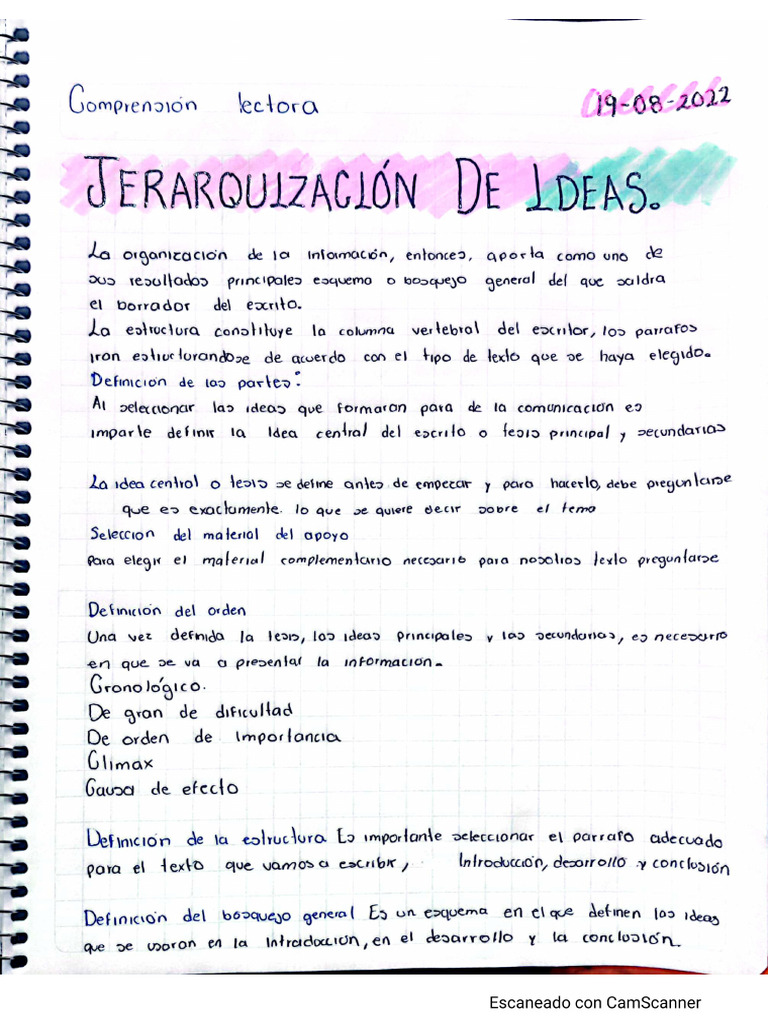 Comprensión lectora
19-08-2022
JERARQUIZACIÓN DE IDEAS.
La organización de la información, entonces, aporta como uno de
sus resultados principales esquema o bosquejo general del que saldra
el borrador del escrito.
La estructura constituye la columna vertebral del escritor, los parrafos
iran estructurandose de acuerdo con el tipo de texto que se haya elegido.
Definición de las partes:
Al seleccionar las ideas que formaran para de la comunicación es
imparte definir la Idea central del escrito o tesis principal y secundarias
La idea central o tesis se define antes de empezar y para hacerlo, debe preguntarse
que es exactamente lo que se quiere decir sobre el tema
Seleccion del material del apoyo
Para elegir el material complementario necesario para nosotros texto preguntarse
Definición del orden
Una vez definida la tesis, las ideas principales y las secundarias, es necesario
en que se va a presentar la información.
Cronológico.
De gran de dificultad
De orden de importancia
Climax
Causa de efecto
Definición de la estructura Es importante seleccionar el parrafo adecuado
para el texto que vamos a escribir, Introducción, desarrollo y conclusión
Definición del bosquejo general Es un esquema en el que definen las ideas
que se usaran en la Introdaccion, en el desarrollo y la conclusión.
Escaneado con CamScanner